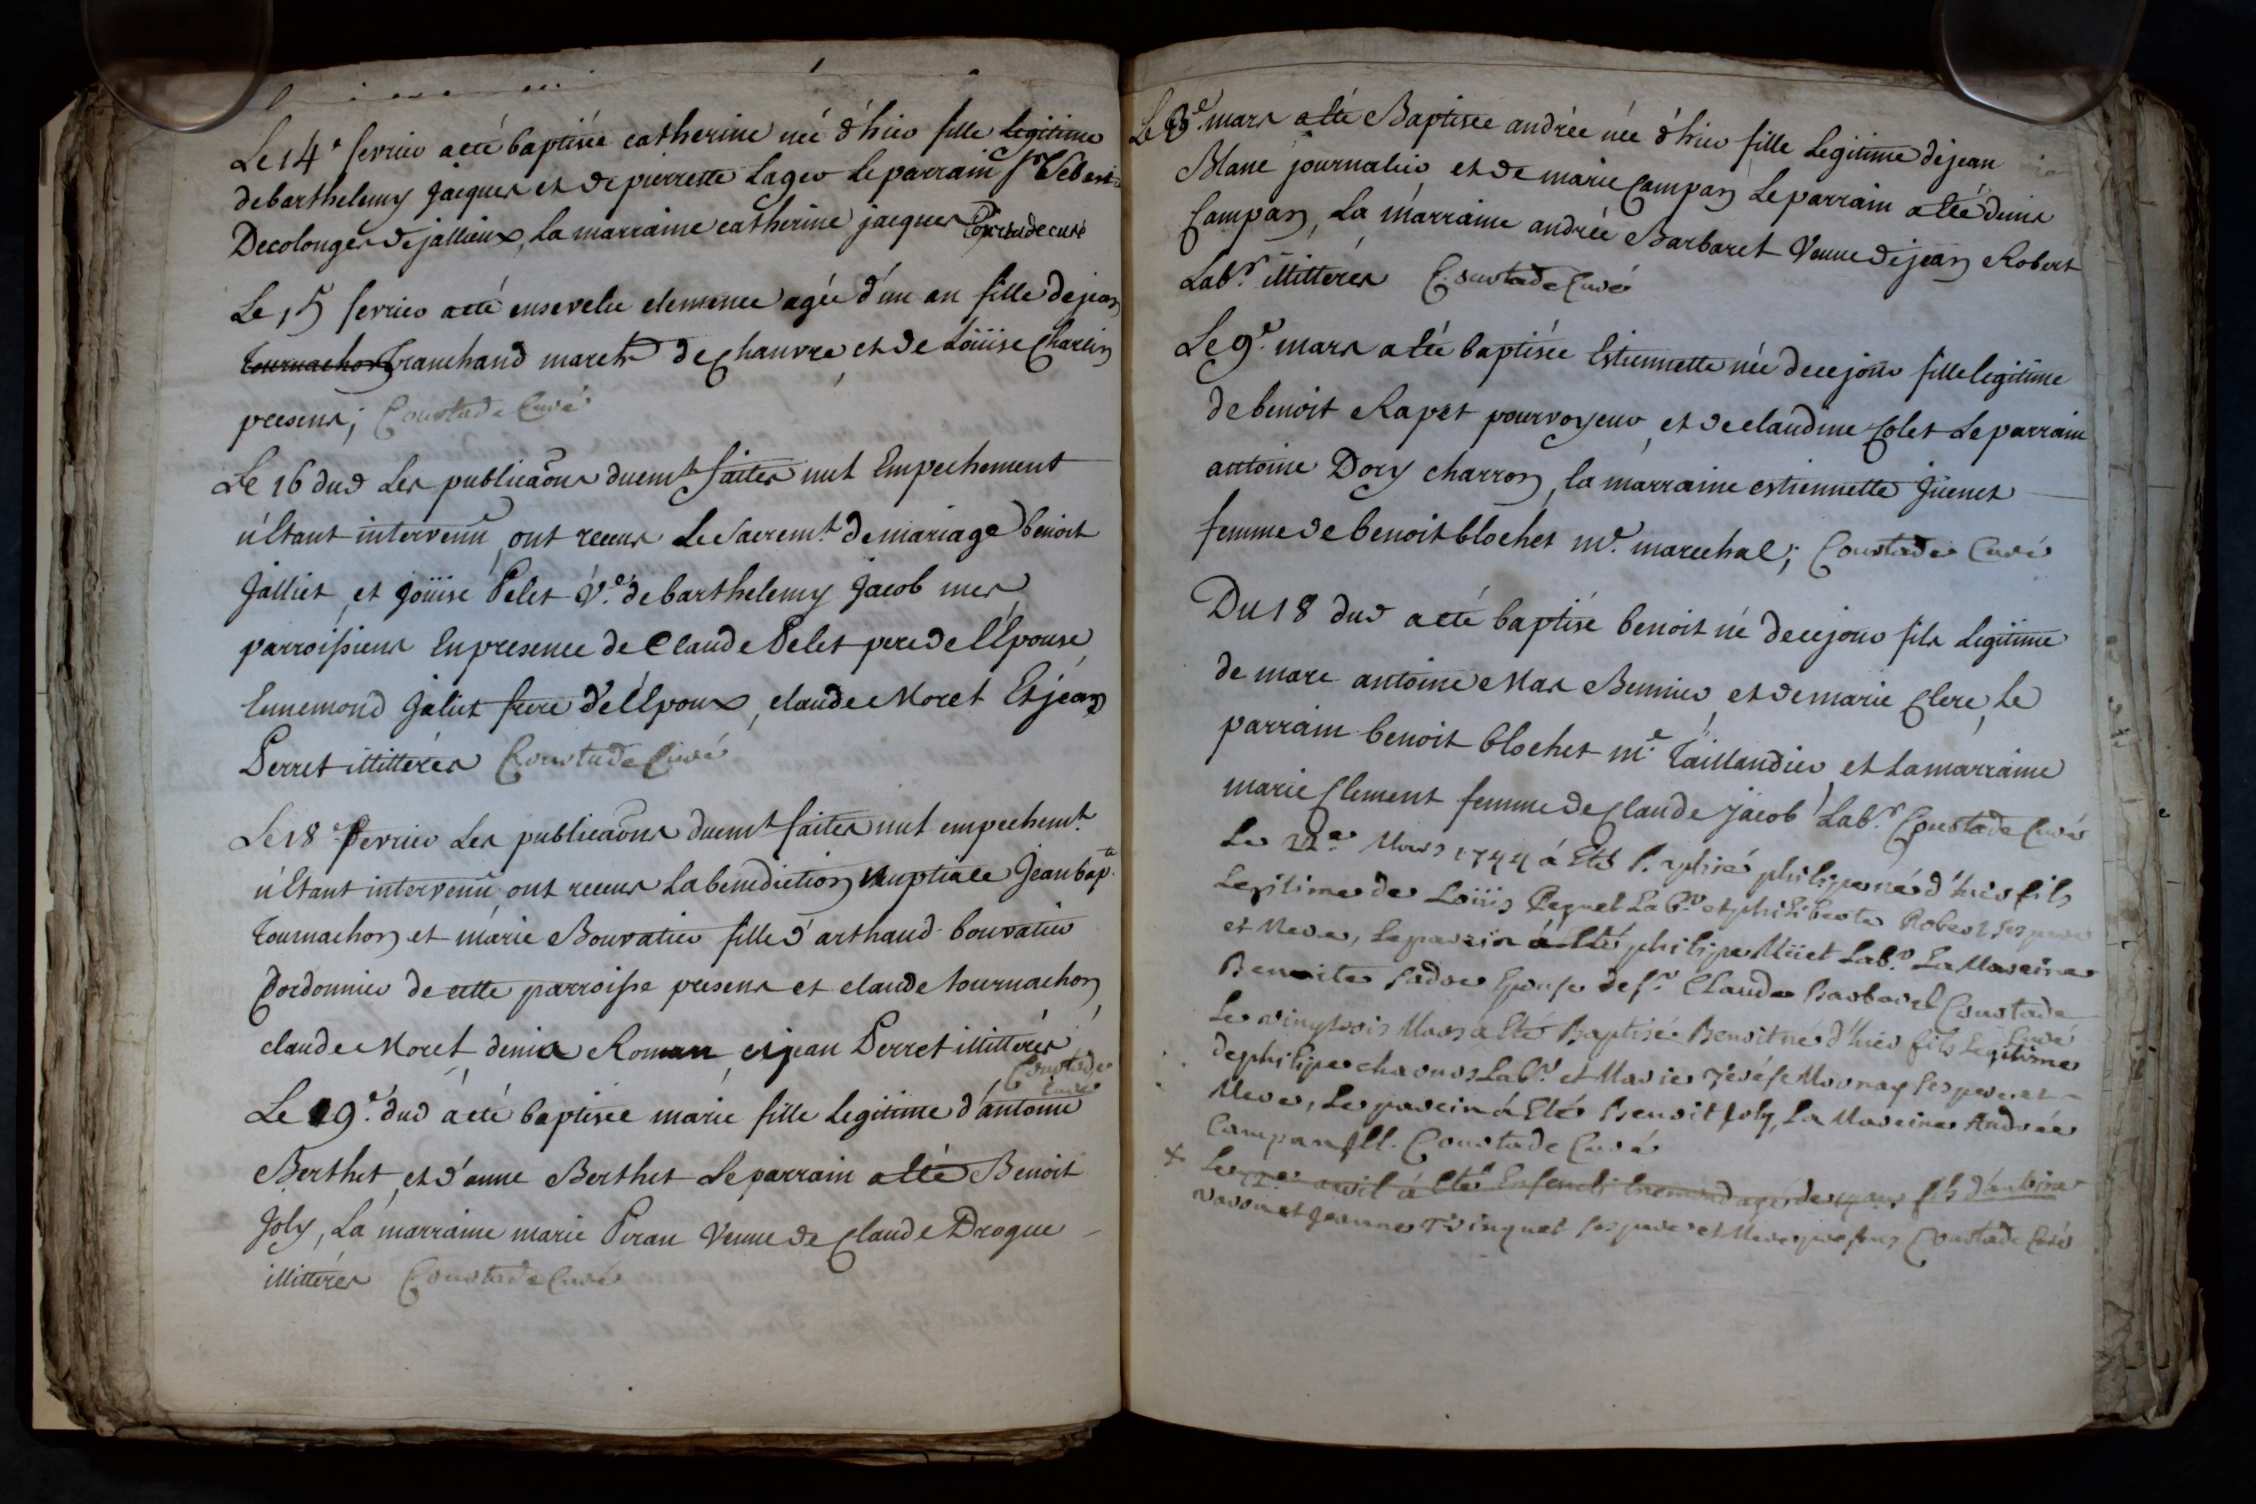 Le 14e fevrier a eté baptisée catherine née d'hier fille legitime
de barthelemy jacques et de pierrette Lager Le parrain Sr
Decolonges de jallieux, La marraine catherine jacques Coustade curé
Le 15 fevrier a eté ensevelie clemence agée d'un an fille de jean
Tournachon Tranchand march.d de chanvre, et de Loüise Charlin
presens; Coustade Curé
Le 16 dud Les publicaõns duem.t faites nul Empechement
n'Etant intervenu, ont receus Le Sacrem.t de mariage benoit
jalliet, et joüise Pelet V.e de barthelemy jacob mes
parroissiens En presence de Claude Pelet pere de l'Epouse,
Ennemond jaliet frere de l'Epoux, claude Moret Et jean
Perret illitterés Coustade Curé
Le 18e Fevrier Les publicaõns duem.t faites nul empechem.t
n'Etant intervenu, ont receus La benediction Nuptiale Jean bap.te
Tournachon et marie Bouvatier fille d'arthaud bouvatier
Cordonnier de cette parroisse presens et claude tournachon,
claude Moret, denis Roman, et jean Perret illitterés
Coustade
Curé
Le 19e dud a eté baptisée marie fille legitime d'antoine
Berthet, et d'anne Berthet Le parrain a eté Benoit
Joly, La marraine marie Piran Veuve de Claude Drogue
illitterés Coustade Curé
Le 3e mars a eté Baptisée andrée née d'hier fille Legitime de jean
Blanc journalier et de marie Campan Le parrain a eté denis
Campan, La marraine andrée Barbaret Veuve de jean Robert
Lab.r illitterés Coustade Curé
Le 9e mars a eté baptisée Estiennette née de ce jour fille legitime
de benoit Rapet pourvoyeur, et de claudine Colet Le parrain
antoine Dory charron, la marraine estiennette Guenet
femme de benoit blochet m.e marechal; Coustade Curé
Du 18 dud a eté baptisé benoit né de ce jour fils Legitime
de marc antoine Mas Bennier, et de marie Clerc, Le
parrain benoit blochet m.e Taillandier, et La marraine
marie Clement femme de Claude jacob Lab.r Coustade Curé
Le 22e Mars 1744 á Eté Baptisé philipe né d'hier fils
Legitime de Loüis Pequet Lab.r et philiberte Robert ses pere
et Mere, Le parein á Eté philipe Müet Lab.r La Mareine
Benoite Epouse de Sr Claude Barbaret Coustade
Curé
Le vingtrois Mars a Eté Baptisé Benoit né d'hier fils Legitime
de philipe Lab.r et Marie Térése Mournay ses pere et
Mere, Le parein á Eté Benoit Joly, La Mareine Andrée
Campan Ill. Coustade Curé
avril á Eté Enseveli Enemond agé de fils d'antoine
et Jeanne Trinquet ses pere et Mere presens Coustade Curé